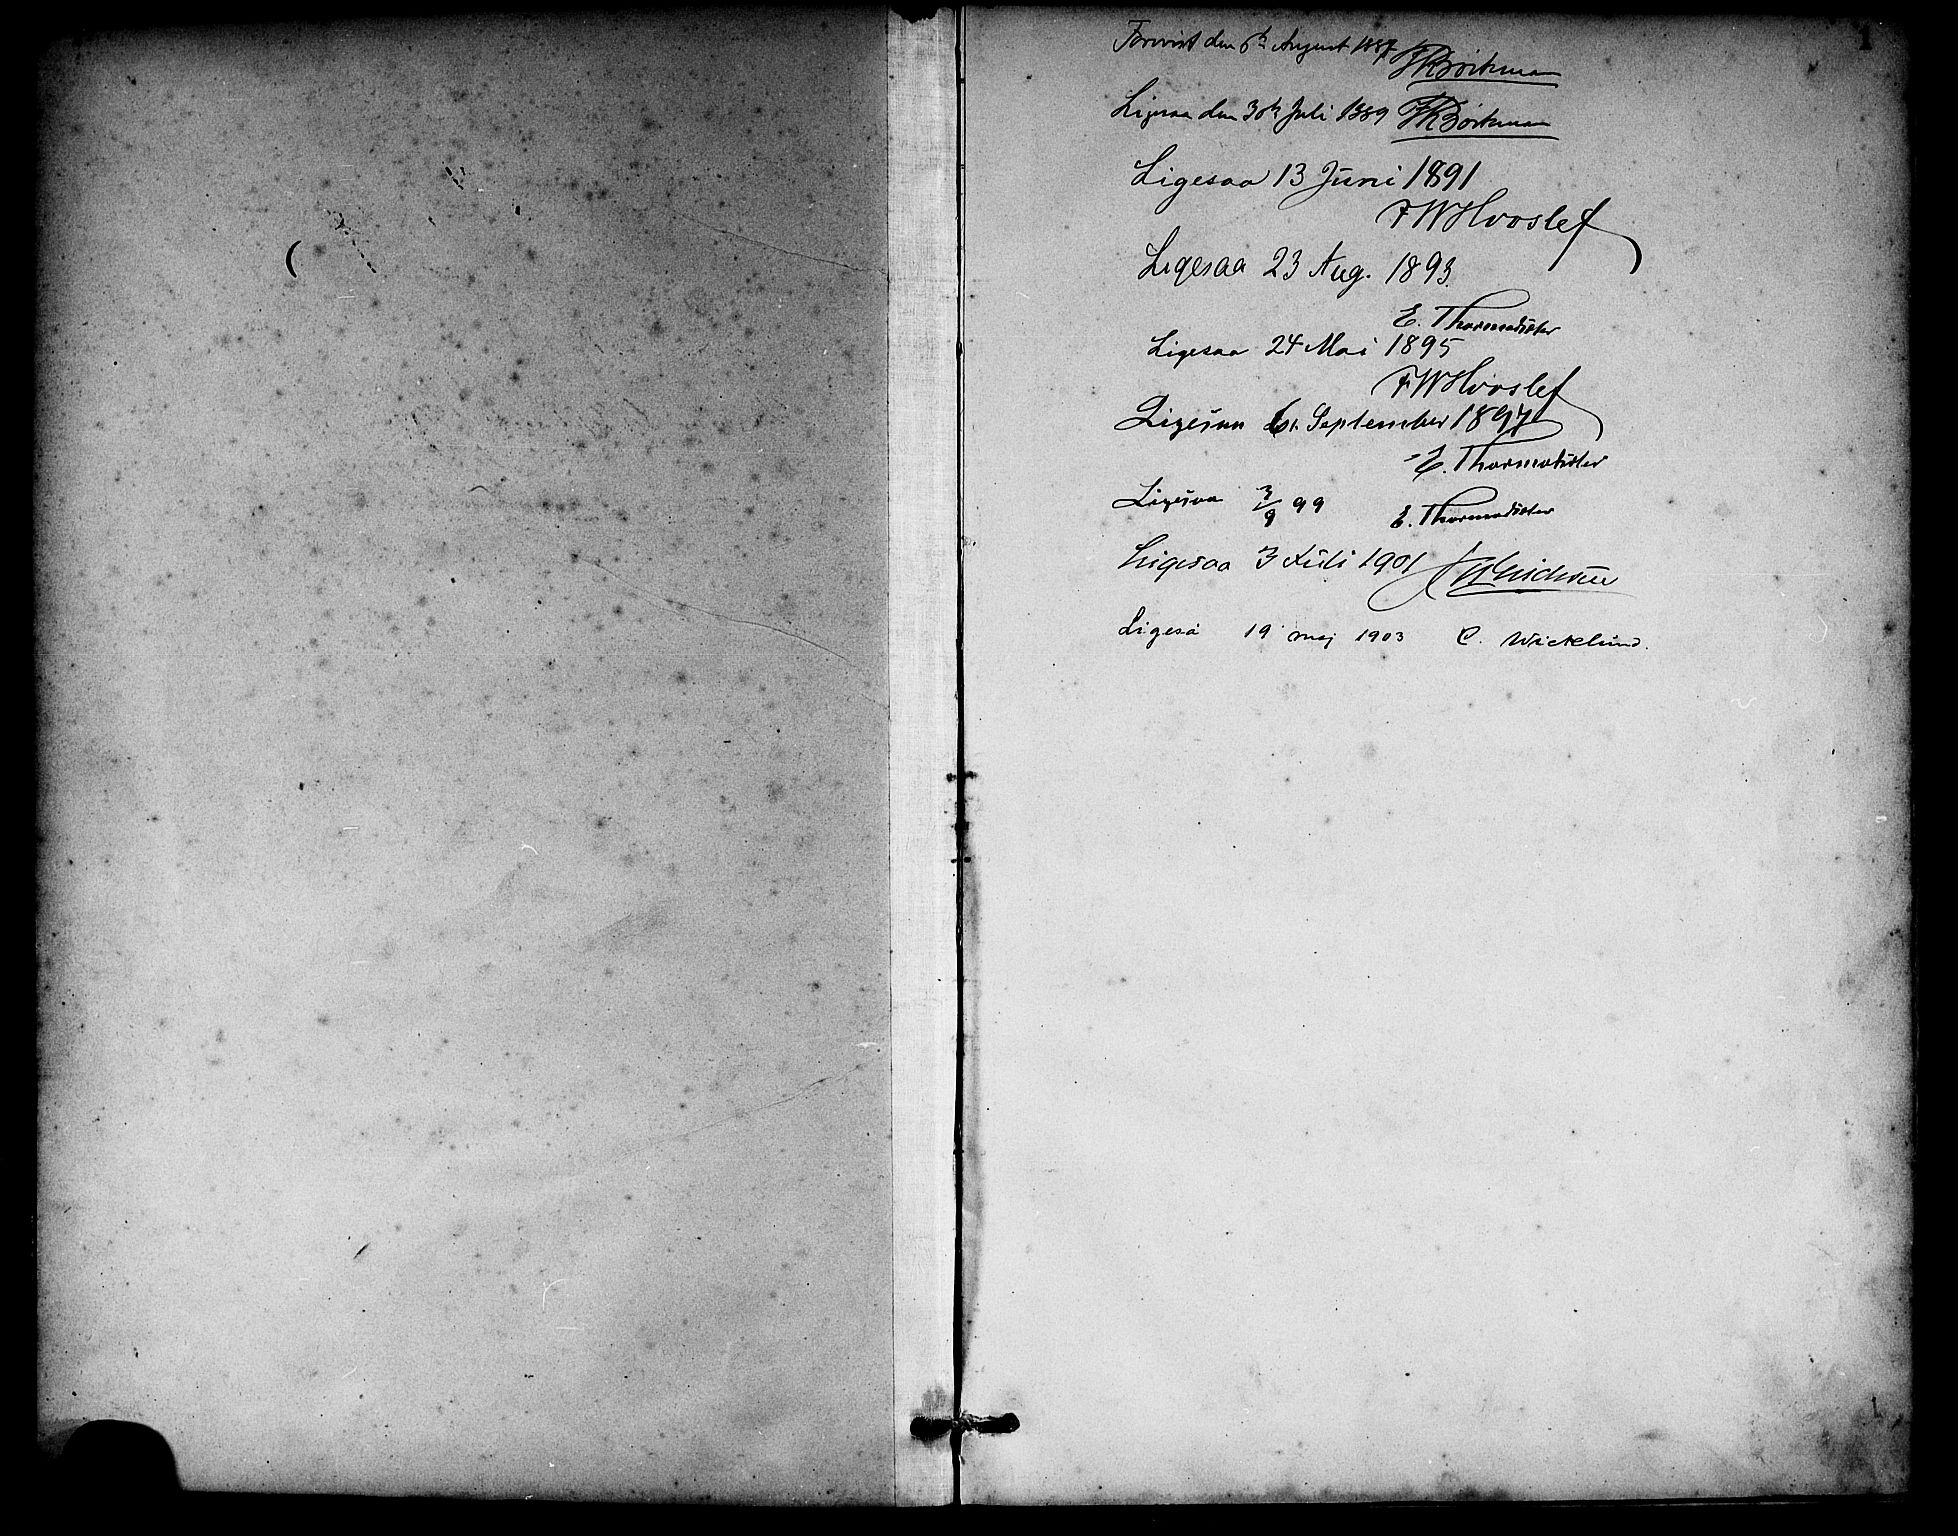 1
Forevist den 6te August 1887 JRBörkman
Ligesaa den 30te Juli 1889 JRBörkman
Ligesaa 13 Juni 1891
FWHvoslef
Ligesaa 23 Aug. 1893.
E. Thormodsæter
Ligesaa 24 Mai 1895
FWHvoslef
Ligesaa 6te September 1897
E. Thormodsæter
Ligesaa 3/9 99 E. Thormodsæter
Ligesaa 3 Juli 1901
Ligeså 19 maj 1903 C. Wicklund.
1